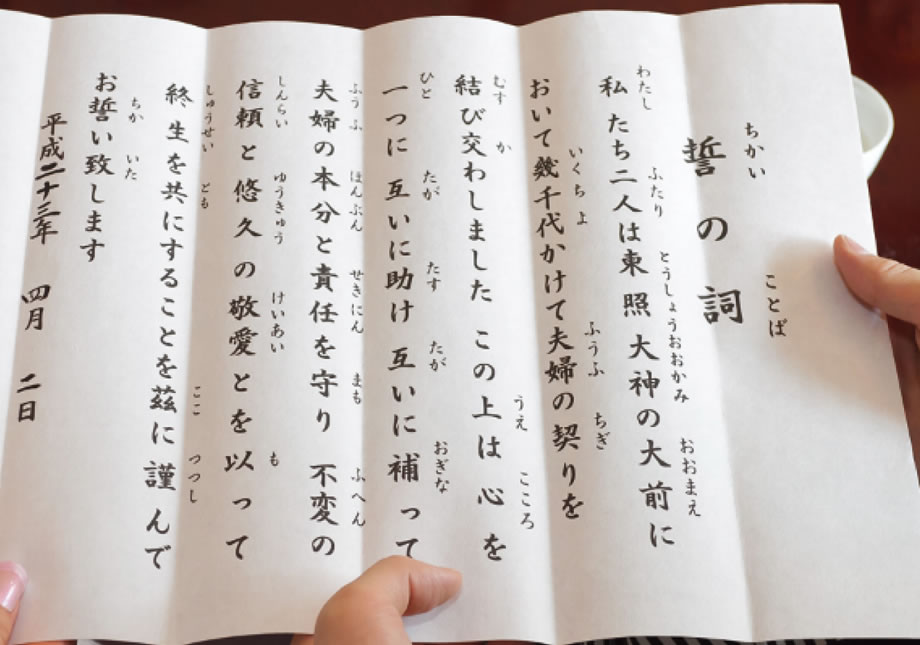 誓の詞
私たち二人は東照大神の大前に
おいて幾千代かけて夫婦の契りを
結び交わしました この上は心を
一つに 互いに助け 互いに補って
夫婦の本分と責任を守り 不変の
信頼と悠久の敬愛とを以って
終生を共にすることを茲に謹んで
お誓い致します
平成二十三年 四月 二日